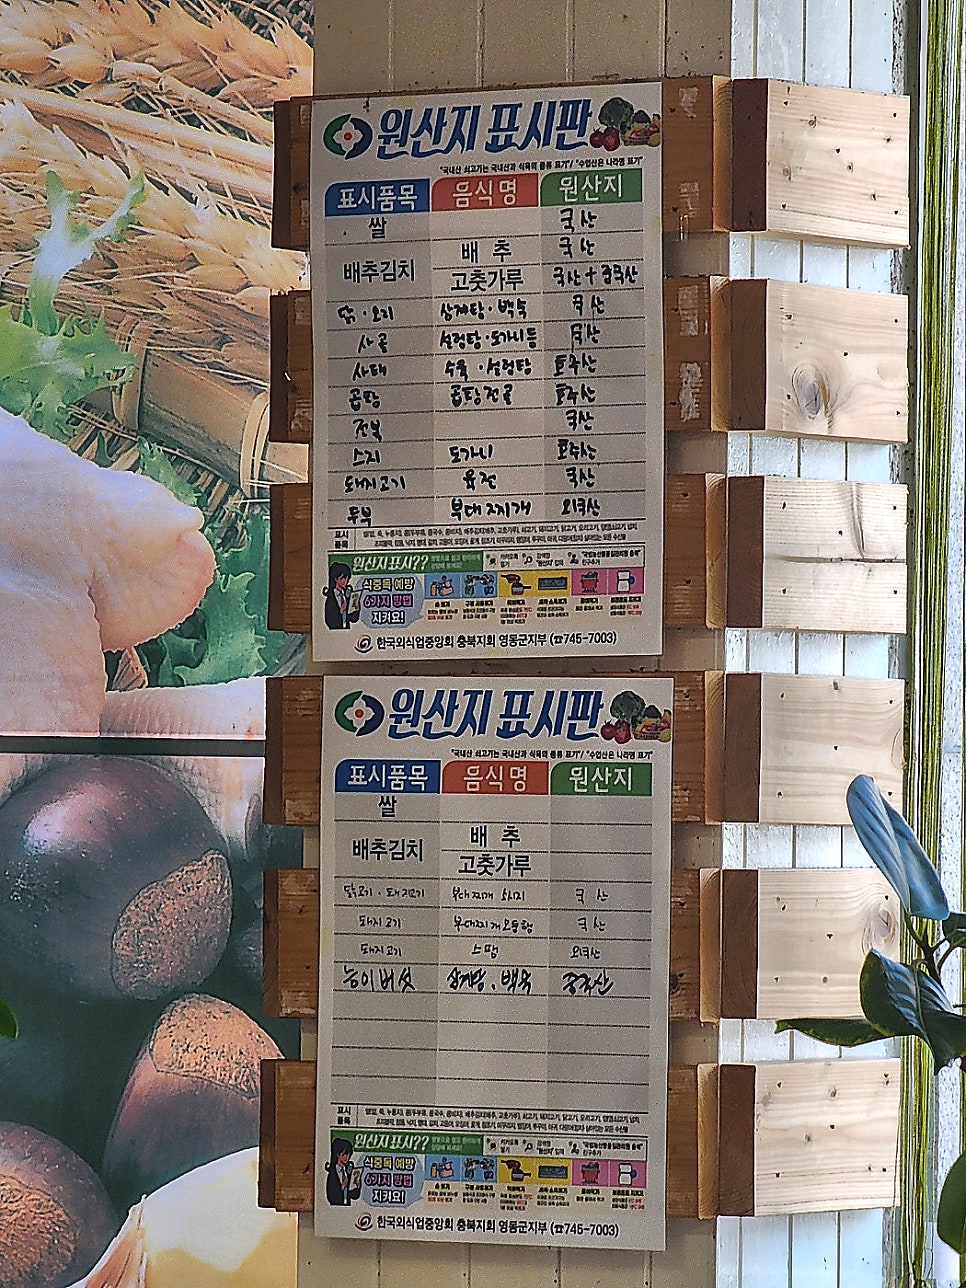 원산지 표시판
"국내산 쇠고기는 국내산과 식육의 종류 표기"/ "수입산은 나라명 표기"
표시품목 음식명 원산지
쌀 국산
배추김치 배추 국산
고춧가루 국산+중국산
닭·오리 삼계탕·백숙 국산
사골 설렁탕·도가니등 국산
사태 수육·설렁탕 호주산
곰탕 곰탕전골 호주산
전복 국산
스지 도가니 호주산
돼지고기 육전 국산
두부 부대찌개 외국산
표시
품목
원산지표시??
식중독 예방
6가지 방법
지켜요!
한국외식업중앙회 충북지회 영동군지부 (☎745-7003)
원산지 표시판
"국내산 쇠고기는 국내산과 식육의 종류 표기"/ "수입산은 나라명 표기"
표시품목 음식명 원산지
쌀
배추김치 배추
고춧가루
닭고기·돼지고기 부대찌개 소시지 국산
돼지고기 부대찌개모듬햄 국산
돼지고기 스팸 외국산
능이버섯 삼계탕·백숙 중국산
표시
품목
원산지표시??
식중독 예방
6가지 방법
지켜요!
한국외식업중앙회 충북지회 영동군지부 (☎745-7003)